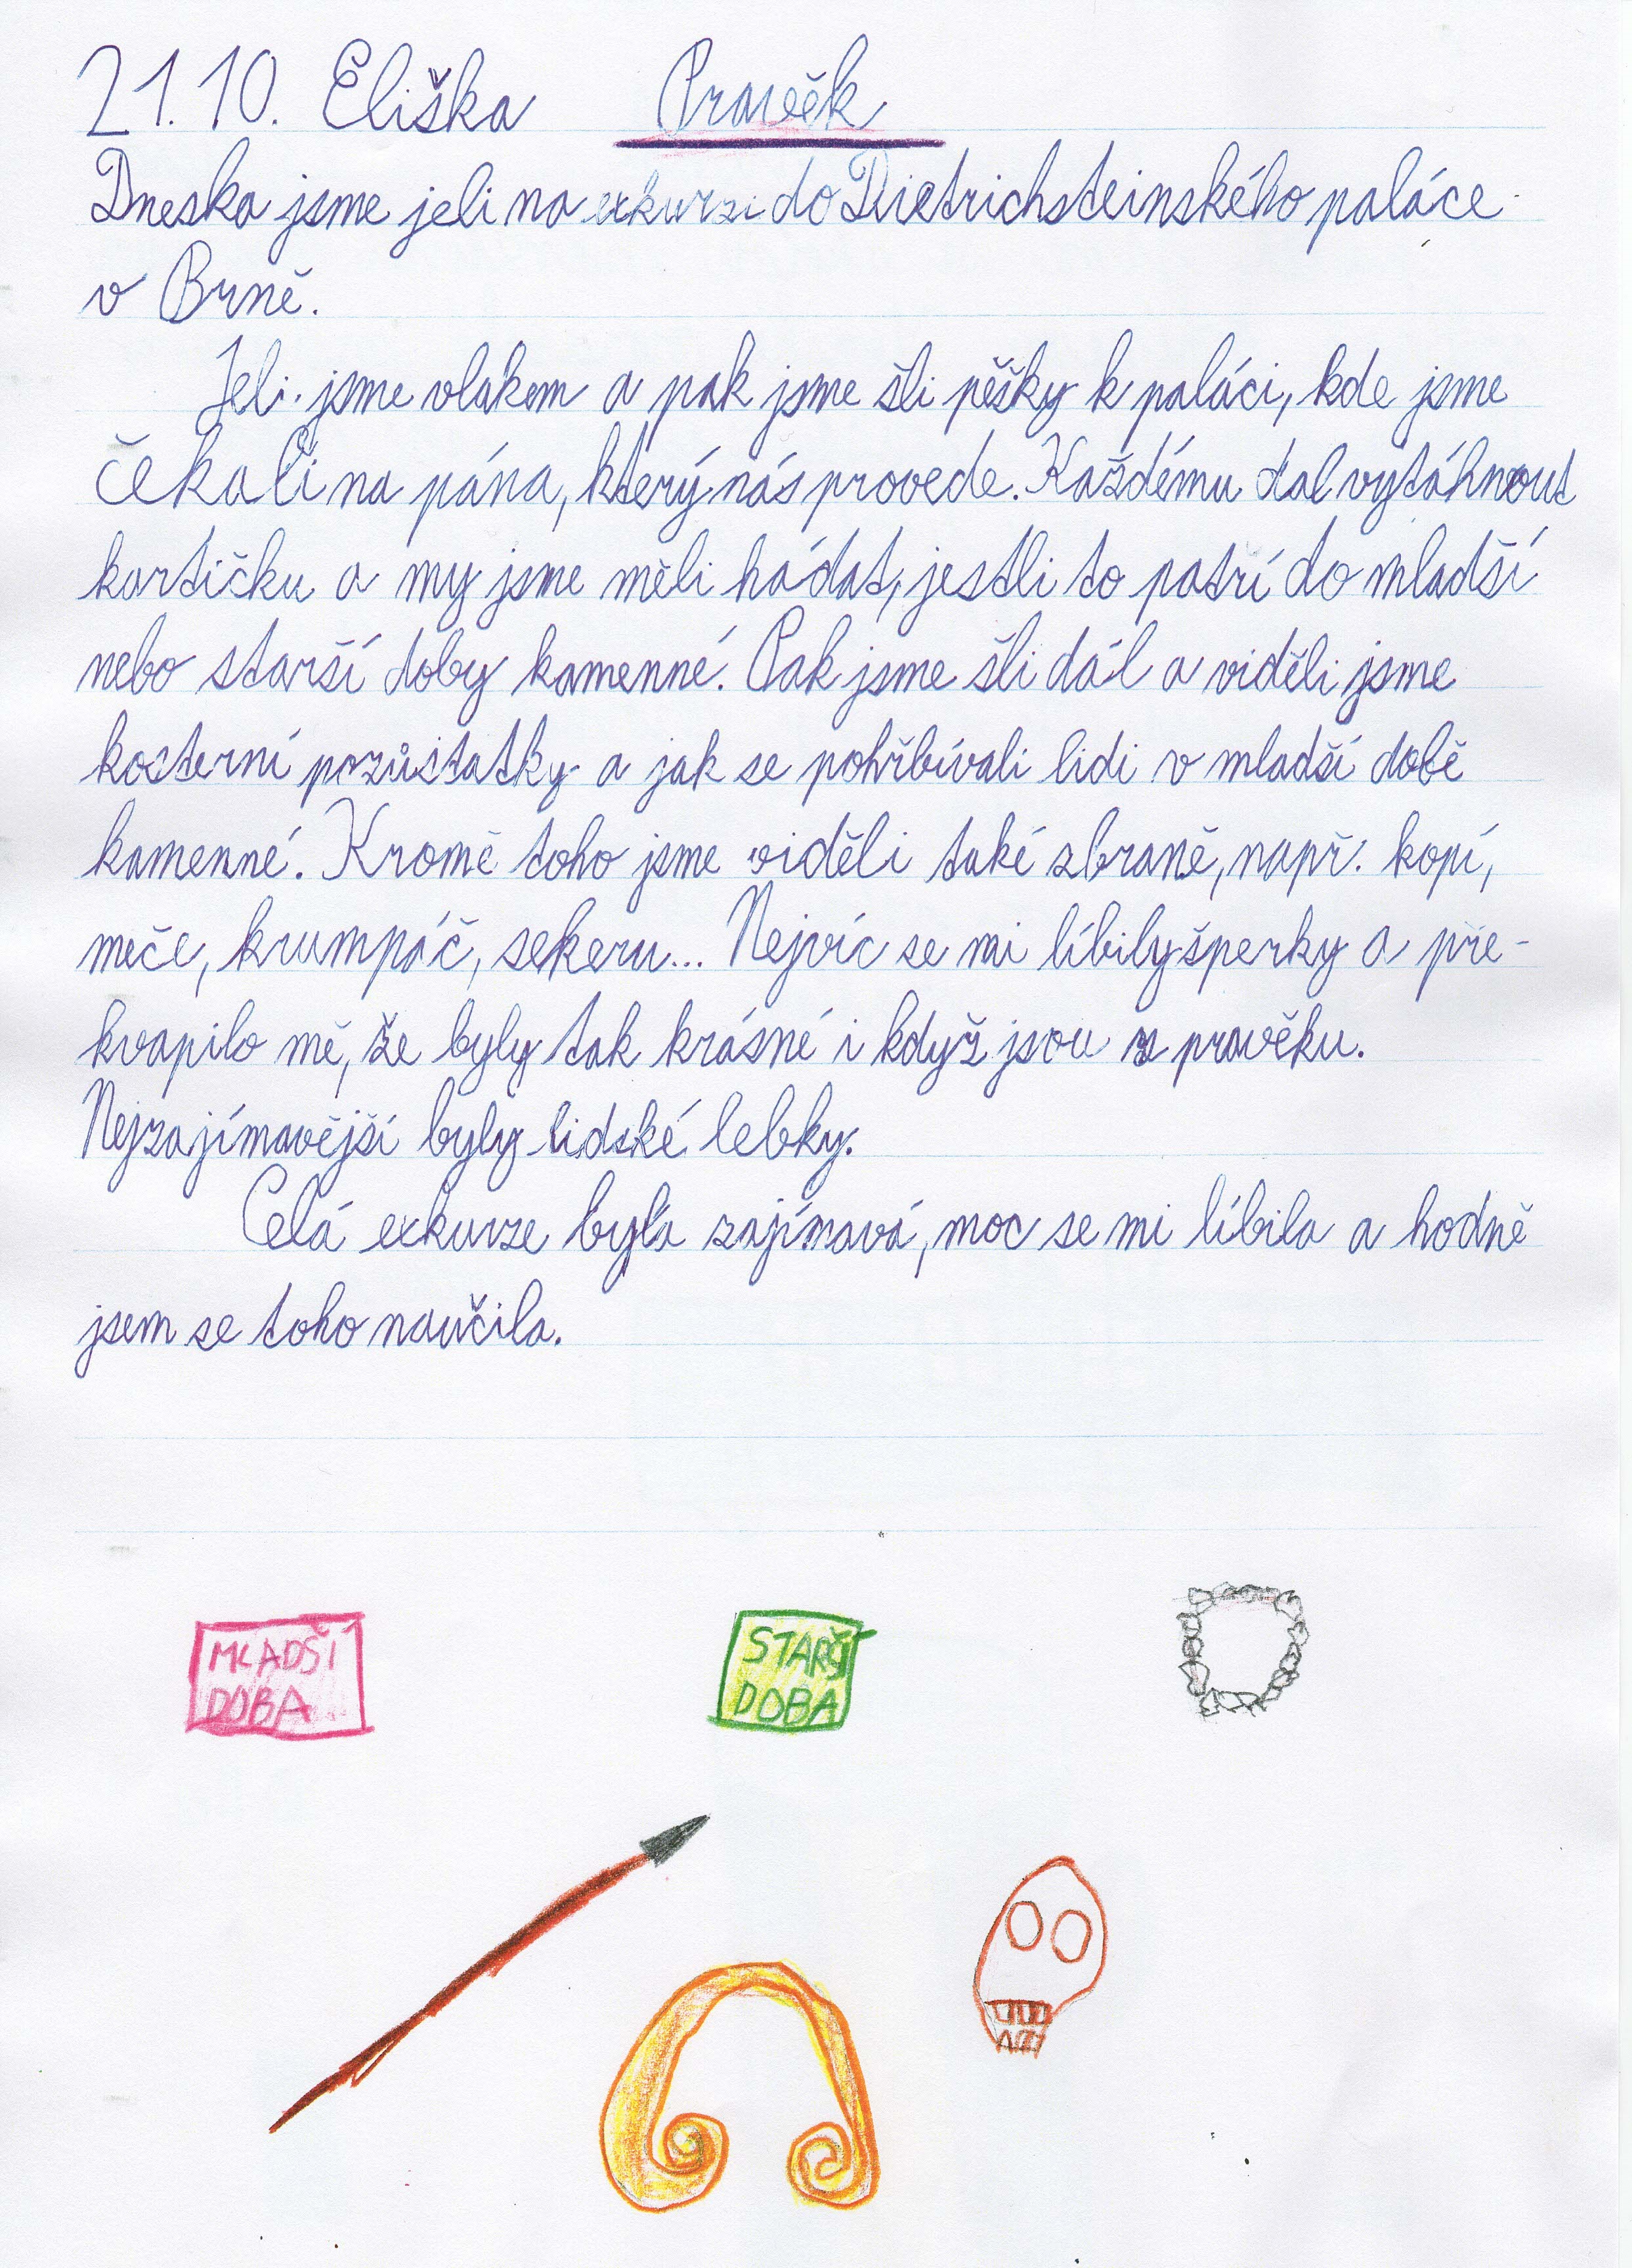 21. 10. Eliška Pravěk
Dneska jsme jeli na exkurzi do Dietrichsteinského paláce
v Brně.
Jeli jsme vlakem a pak jsme šli pěšky k paláci, kde jsme
čekali na pána, který nás provede. Každému dal vytáhnout
kartičku a my jsme měli hádat, jestli to patří do mladší
nebo starší doby kamenné. Pak jsme šli dál a viděli jsme
kosterní pozůstatky a jak se pohřbívali lidi v mladší době
kamenné. Kromě toho jsme viděli také zbraně, např. kopí,
meče, krumpáč, sekeru... Nejvíc se mi líbily šperky a pře-
kvapilo mě, že byly tak krásné i když jsou z pravěku.
Nejzajímavější byly lidské lebky.
Celá exkurze byla zajímavá, moc se mi líbila a hodně
jsem se toho naučila.
MLADŠÍ
DOBA
STARŠÍ
DOBA